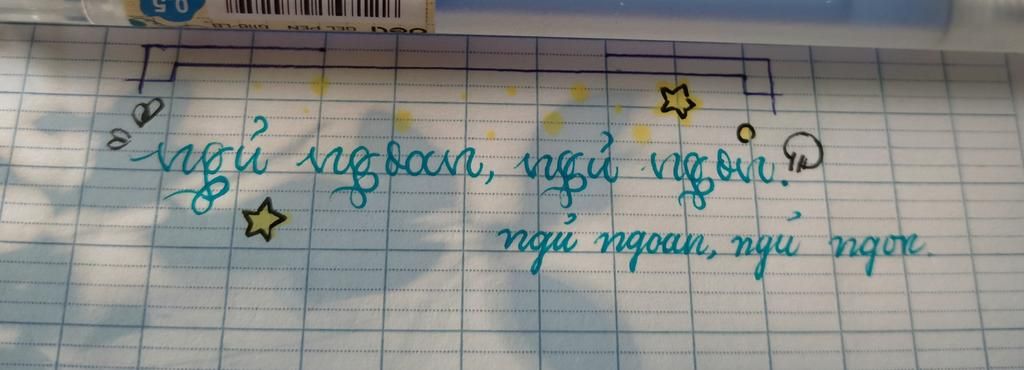 0.5
GEL PEN
ngủ ngoan, ngủ ngon.
ngủ ngoan, ngủ ngon.